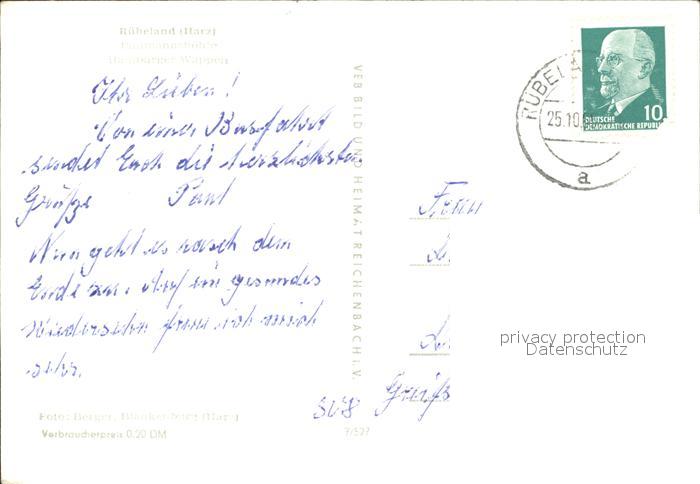 Rübeland (Harz)
Baumannshöhle
Hamburger Wappen
Ihr Lieben!
Von einer Busfahrt
sendet Euch die herzlichsten
Grüße Paul
Nun geht es rasch dem
Ende zu. Auf ein gesundes
Wiedersehn freue ich mich
sehr.
Foto: Berger, Blankenburg (Harz)
Verbraucherpreis 0,20 DM
VEB BILD UND HEIMAT REICHENBACH i. V.
7/527
RÜBELA
25.10
a
10
DEUTSCHE
DEMOKRATISCHE REPUBLIK
Frau
privacy protection
Datenschutz